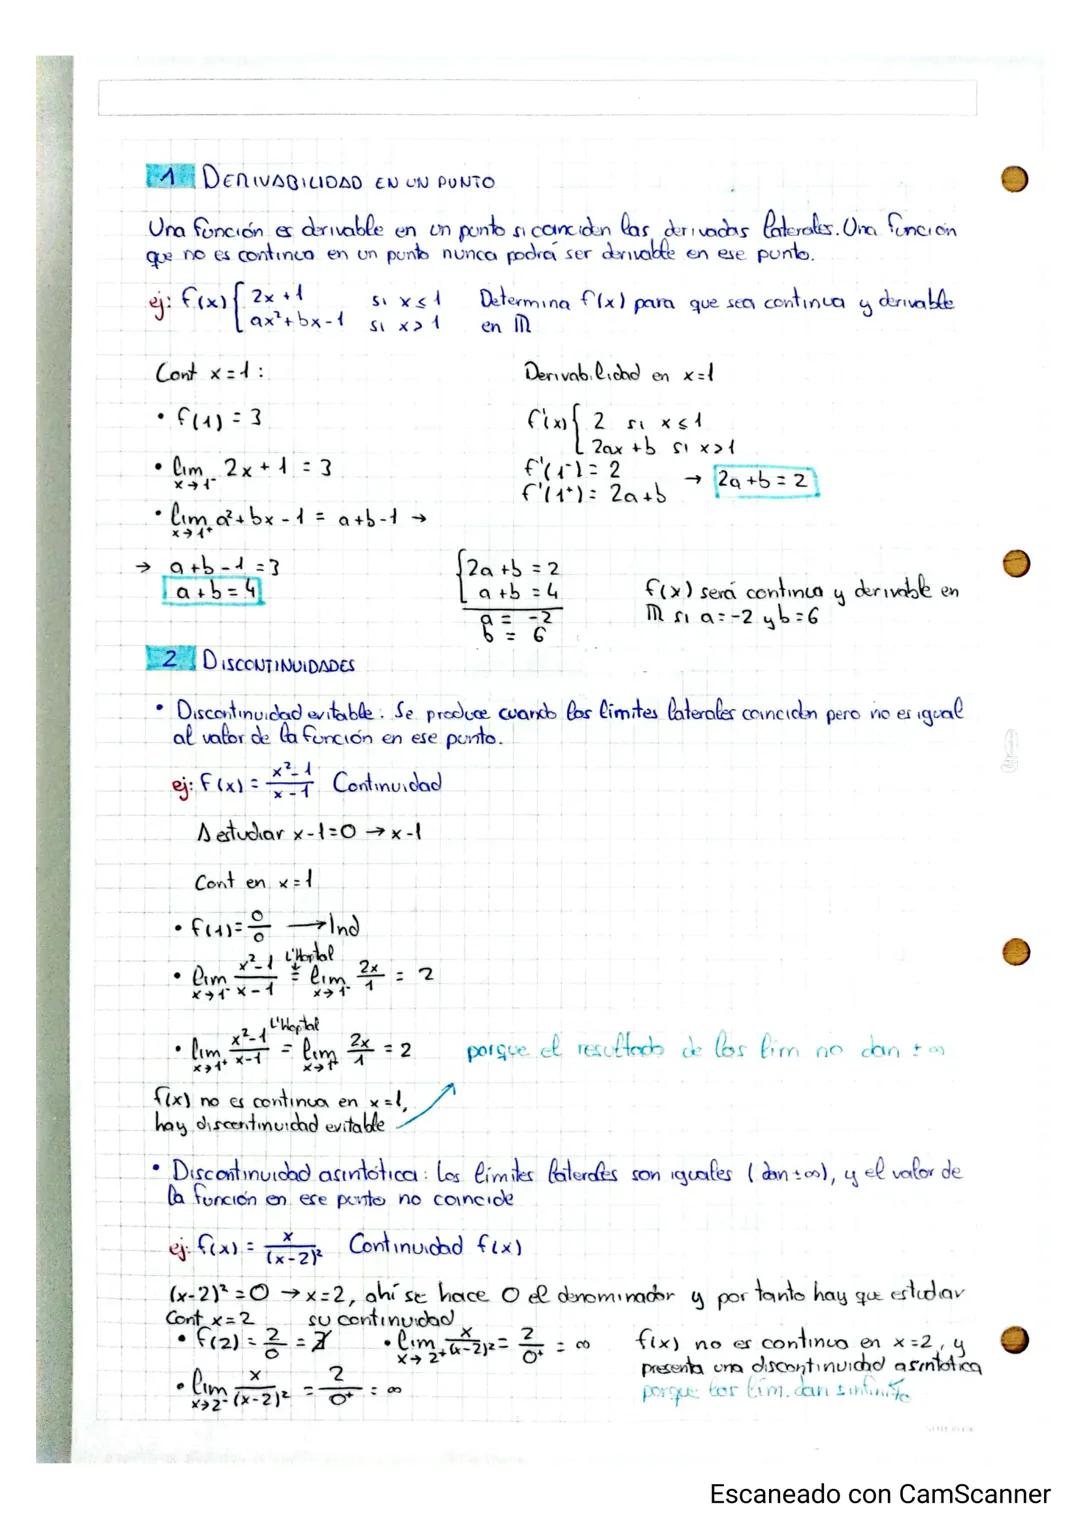 1 DERIVABILIDAD EN UN PUNTO
Una función es derivable en un punto si coinciden las derivadas laterales. Una función
que no es continua en un punto nunca podrá ser derivable en ese punto.
ej: f(x) { 2x + 1 si x ≤ 1 Determina f(x) para que sea continua y derivable
ax² + bx - 1 si x > 1 en ℝ
Cont x = 1: Derivabilidad en x = 1
• f(1) = 3 f'(x) { 2 si x ≤ 1
2ax + b si x > 1
• lim x→1⁻ 2x + 1 = 3 f'(1⁻) = 2
f'(1⁺) = 2a + b → 2a + b = 2
• lim x→1⁺ a² + bx - 1 = a + b - 1 →
→ a + b - 1 = 3 { 2a + b = 2
a + b = 4 a + b = 4 f(x) será continua y derivable en
a = -2 ℝ si a = -2 y b = 6
b = 6
2 DISCONTINUIDADES
• Discontinuidad evitable: Se produce cuando los límites laterales coinciden pero no es igual
al valor de la función en ese punto.
ej: f(x) = x²-1 / x-1 Continuidad
A estudiar x-1=0 → x-1
Cont en x = 1
• f(1) = 0/0 → Ind
• lim x→1⁻ x²-1 / x-1 = L'Hopital lim x→1⁻ 2x/1 = 2
• lim x→1⁺ x²-1 / x-1 = L'Hopital lim x→1⁺ 2x/1 = 2 porque el resultado de los lim no dan ±∞
f(x) no es continua en x = 1,
hay discontinuidad evitable
• Discontinuidad asintótica: los límites laterales son iguales (dan ±∞), y el valor de
la función en ese punto no coincide
ej: f(x) = x / (x-2)² Continuidad f(x)
(x-2)² = 0 → x=2, ahí se hace 0 el denominador y por tanto hay que estudiar
Cont x = 2 su continuidad
• f(2) = 2/0 = ∄ • lim x→2⁺ x/(x-2)² = 2/0⁺ = ∞ f(x) no es continua en x = 2, y
• lim x→2⁻ x/(x-2)² = 2/0⁺ = ∞ presenta una discontinuidad asintótica
porque los lim. dan ± infinito
Escaneado con CamScanner